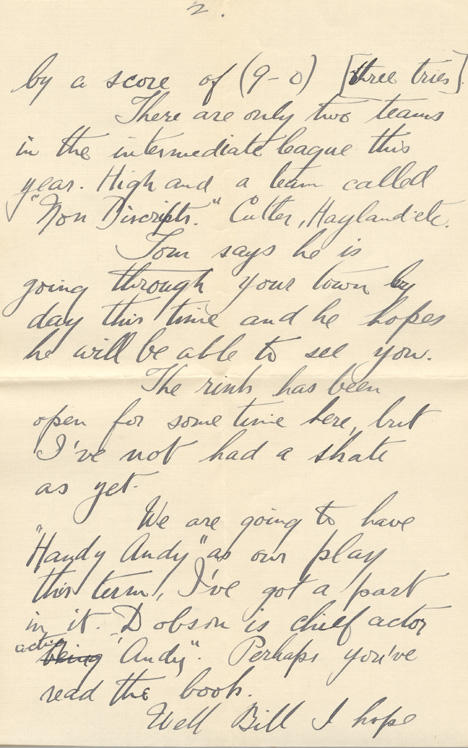 2.
by a score of (9-0) [three tries].
There are only two teams
in the intermediate league this
year. High and a team called
"Non Discripts." Cutter, Hayland etc.
Tom says he is
going through your town by
day this time and he hopes
he will be able to see you.
The rink has been
open for some time here, but
I've not had a skate
as yet.
We are going to have
"Handy Andy" as our play
this term, I've got a part
in it. Dobson is chief actor
acting being 'Andy'. Perhaps you've
read the book.
Well Bill I hope